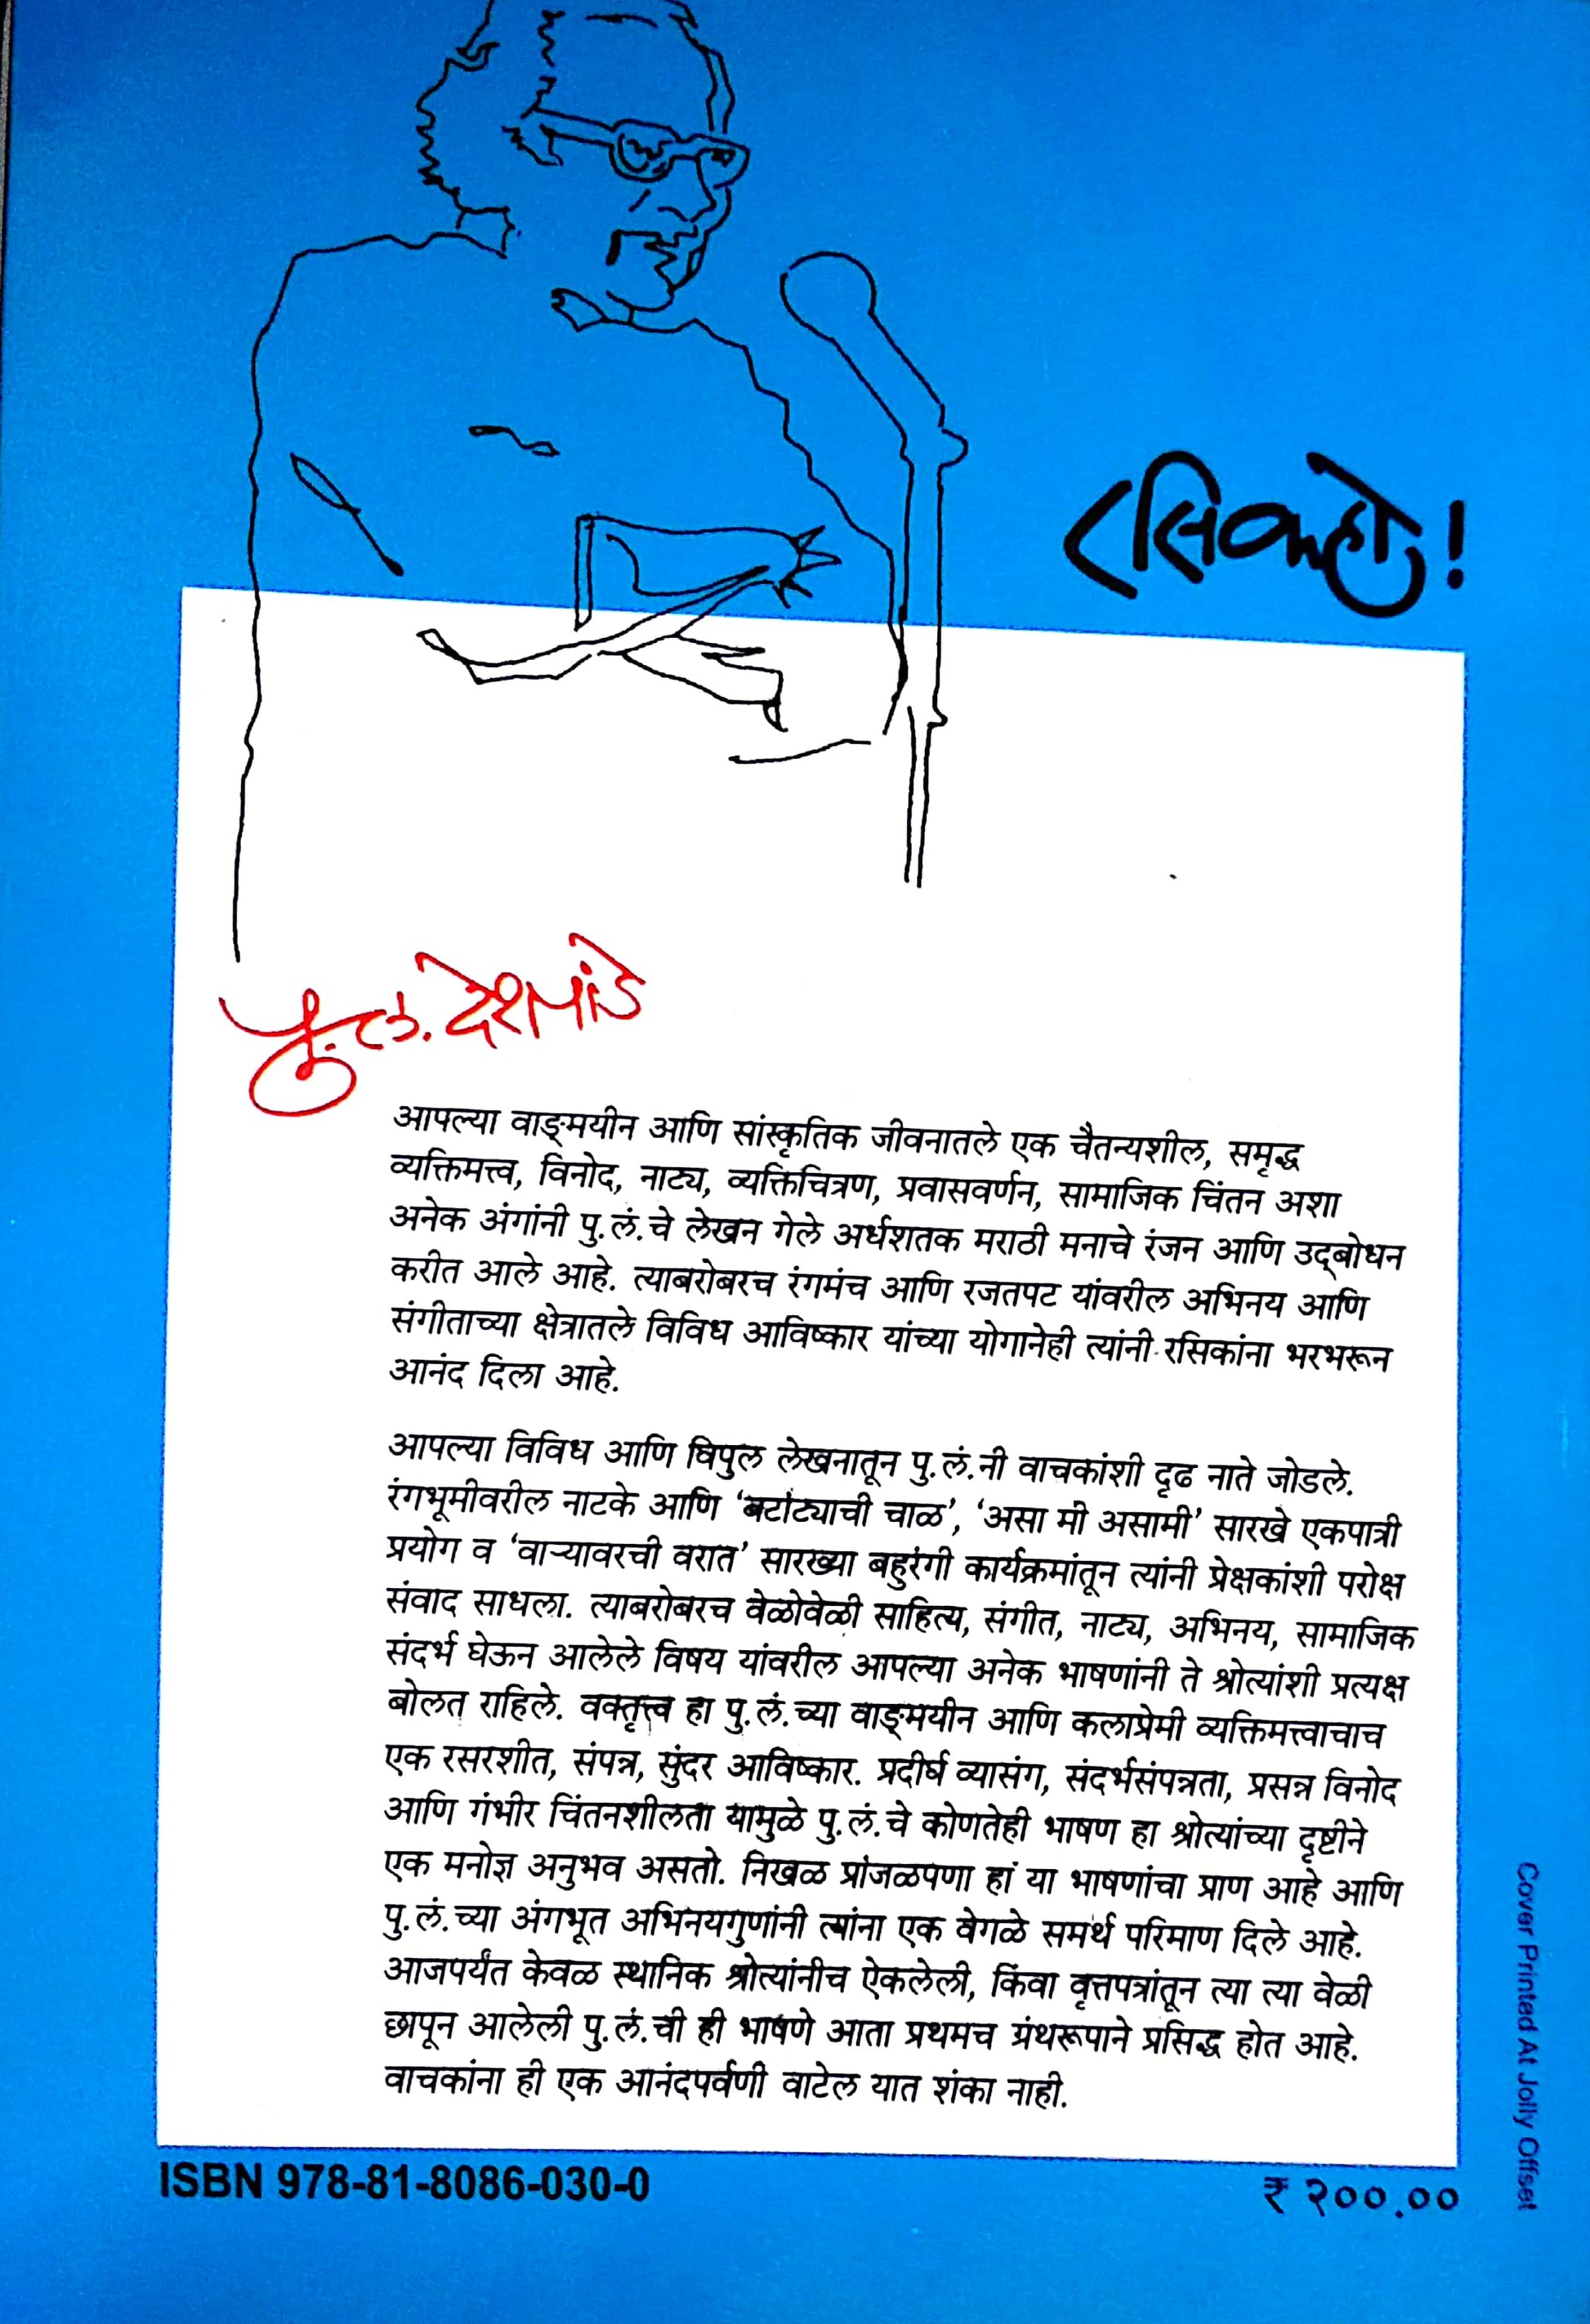 रसिकहो!
पु. ल. देशपांडे
आपल्या वाङ्‌मयीन आणि सांस्कृतिक जीवनातले एक चैतन्यशील, समृद्ध
व्यक्तिमत्त्व, विनोद, नाट्य, व्यक्तिचित्रण, प्रवासवर्णन, सामाजिक चिंतन अशा
अनेक अंगांनी पु.लं.चे लेखन गेले अर्धशतक मराठी मनाचे रंजन आणि उद्‌बोधन
करीत आले आहे. त्याबरोबरच रंगमंच आणि रजतपट यांवरील अभिनय आणि
संगीताच्या क्षेत्रातले विविध आविष्कार यांच्या योगानेही त्यांनी रसिकांना भरभरून
आनंद दिला आहे.
आपल्या विविध आणि विपुल लेखनातून पु.लं.नी वाचकांशी दृढ नाते जोडले.
रंगभूमीवरील नाटके आणि ‘बटाट्याची चाळ’, ‘असा मी असामी’ सारखे एकपात्री
प्रयोग व ‘वाऱ्यावरची वरात’ सारख्या बहुरंगी कार्यक्रमांतून त्यांनी प्रेक्षकांशी परोक्ष
संवाद साधला. त्याबरोबरच वेळोवेळी साहित्य, संगीत, नाट्य, अभिनय, सामाजिक
संदर्भ घेऊन आलेले विषय यांवरील आपल्या अनेक भाषणांनी ते श्रोत्यांशी प्रत्यक्ष
बोलत राहिले. वक्तृत्त्व हा पु.लं.च्या वाङ्‌मयीन आणि कलाप्रेमी व्यक्तिमत्त्वाचाच
एक रसरशीत, संपन्न, सुंदर आविष्कार. प्रदीर्घ व्यासंग, संदर्भसंपन्नता, प्रसन्न विनोद
आणि गंभीर चिंतनशीलता यामुळे पु.लं.चे कोणतेही भाषण हा श्रोत्यांच्या दृष्टीने
एक मनोज्ञ अनुभव असतो. निखळ प्रांजळपणा हा या भाषणांचा प्राण आहे आणि
पु.लं.च्या अंगभूत अभिनयगुणांनी त्यांना एक वेगळे समर्थ परिमाण दिले आहे.
आजपर्यंत केवळ स्थानिक श्रोत्यांनीच ऐकलेली, किंवा वृत्तपत्रांतून त्या त्या वेळी
छापून आलेली पु.लं.ची ही भाषणे आता प्रथमच ग्रंथरूपाने प्रसिद्ध होत आहे.
वाचकांना ही एक आनंदपर्वणी वाटेल यात शंका नाही.
ISBN 978-81-8086-030-0
₹ २००.००
Cover Printed At Jolly Offset